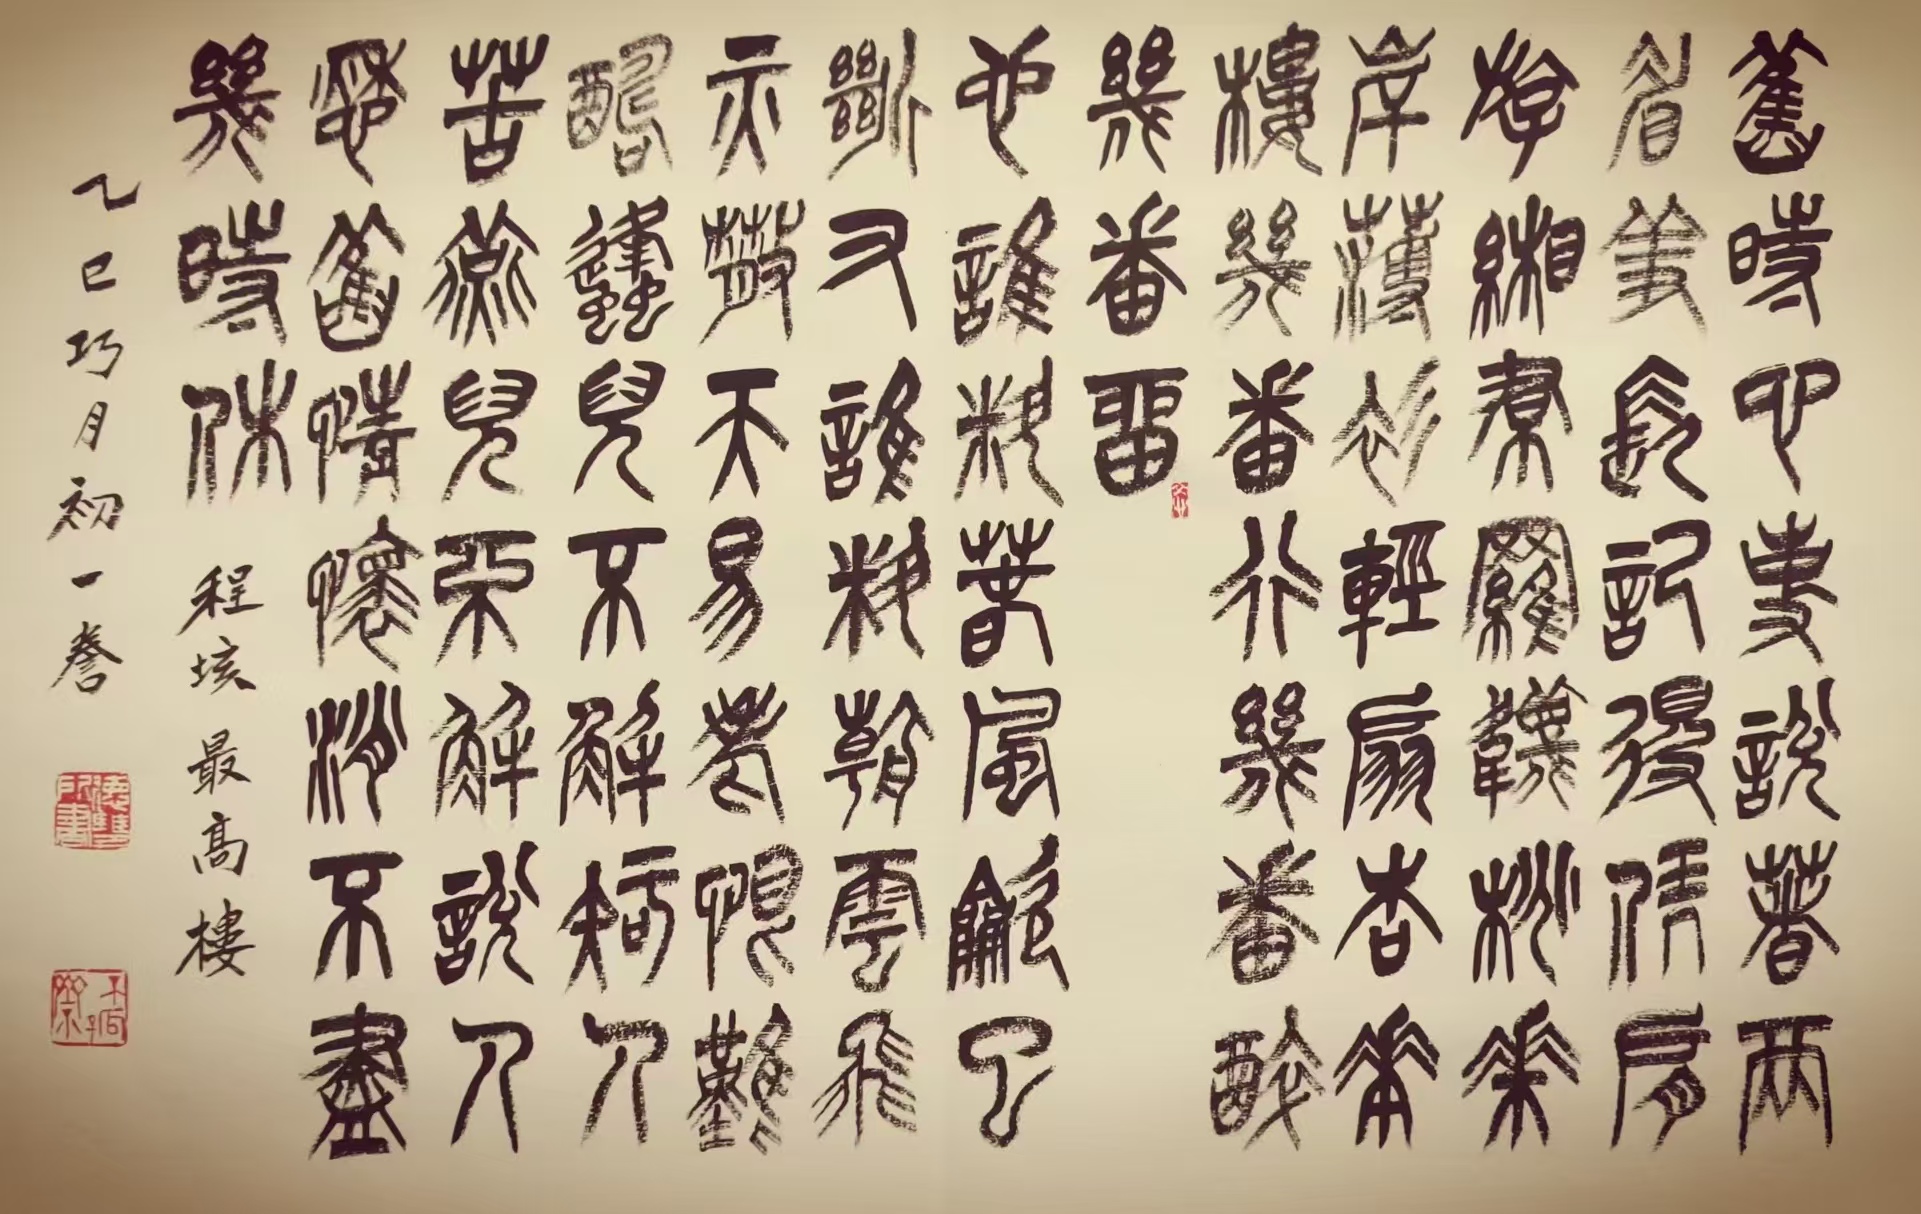 舊時心事說著兩
眉羞長記得凭肩
游緗裙羅襪桃花
岸薄衫輕扇杏花
樓幾番行幾番醉
幾番留
也誰料春風龡已
斷又誰料朝雲飛
亦散天易老恨難
酬蜂兒不解知人
苦燕兒不解說人
愁舊情懷消不盡
幾時休 程垓最高樓
乙巳巧月初一誊